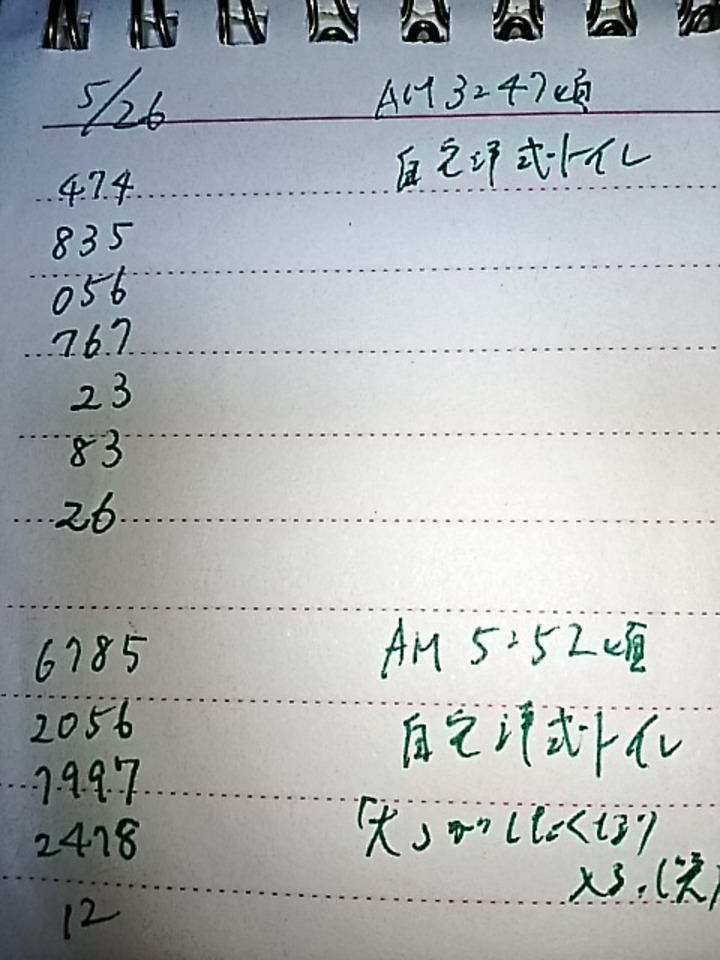 5/26 AM 3:47頃
474 自宅洋式トイレ
835
056
767
23
83
26
6785 AM 5:52頃
2056 自宅洋式トイレ
7997
2478 「大」がしたくなり
12